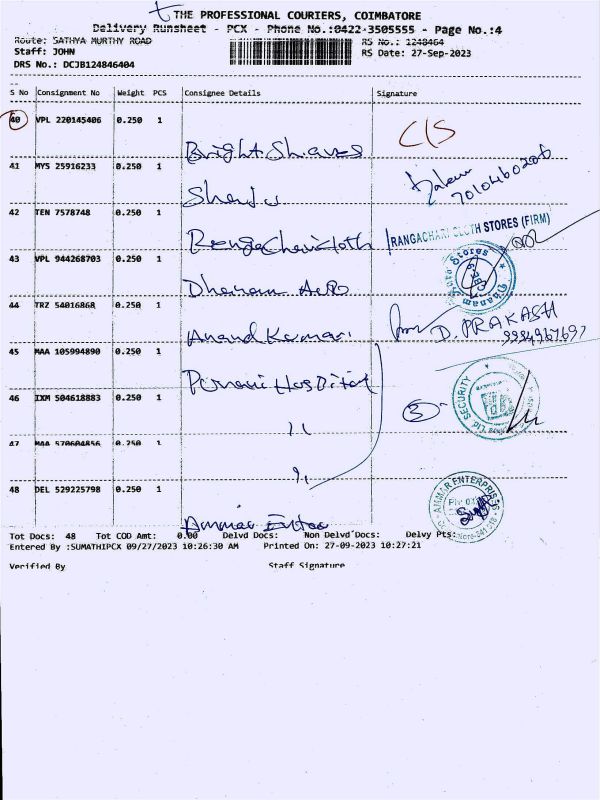 THE PROFESSIONAL COURIERS, COIMBATORE
Delivery Runsheet - PCX - Phone No.:0422-3505555 - Page No.:4
Route: SATHYA MURTHY ROAD RS No.: 1248464
Staff: JOHN RS Date: 27-Sep-2023
DRS No.: DCJB124846404
S No Consignment No Weight PCS Consignee Details Signature
40 VPL 220145406 0.250 1 C/S
Bright Shares
41 MYS 25916233 0.250 1
42 TEN 7578748 0.250 1
RANGACHARI CLOTH STORES (FIRM)
43 VPL 944268703 0.250 1
44 TRZ 54016868 0.250 1
Anand Kumar D. PRAKASH
45 MAA 105994890 0.250 1
Hospital
46 IXM 504618883 0.250 1 3 SECURITY
47 MAA 570604856 0.250 1
48 DEL 529225798 0.250 1 AMMAR ENTERPRISES
Ammar Enter
Tot Docs: 48 Tot COD Amt: 0.00 Delvd Docs: Non Delvd Docs: Delvy Pts:
Entered By :SUMATHIPCX 09/27/2023 10:26:30 AM Printed On: 27-09-2023 10:27:21
Verified By Staff Signature